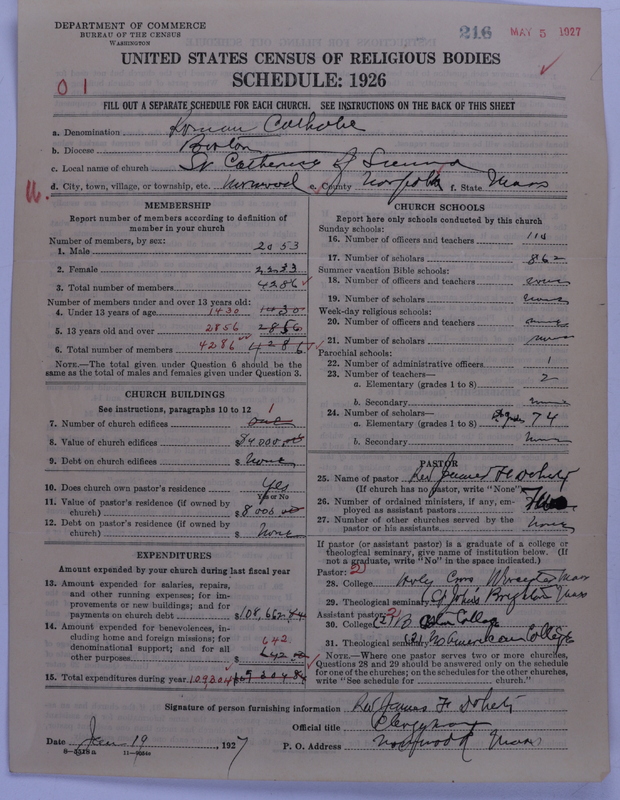 DEPARTMENT OF COMMERCE
BUREAU OF THE CENSUS
WASHINGTON
216 MAY 5 1927
UNITED STATES CENSUS OF RELIGIOUS BODIES
SCHEDULE: 1926
0 1
FILL OUT A SEPARATE SCHEDULE FOR EACH CHURCH. SEE INSTRUCTIONS ON THE BACK OF THIS SHEET
a. Denomination Roman Catholic
b. Diocese Boston
c. Local name of church St Catherine of Sienna
d. City, town, village, or township, etc. Norwood e. County Norfolk f. State Mass
MEMBERSHIP
Report number of members according to definition of
member in your church
Number of members, by sex:
1. Male 2053
2. Female 2233
3. Total number of members 4286
Number of members under and over 13 years old:
4. Under 13 years of age. 1430 1430
5. 13 years old and over 2856 2856
6. Total number of members 4286 4286
NOTE.—The total given under Question 6 should be
same as the total of males and females given under Question 3.
CHURCH BUILDINGS
See instructions, paragraphs 10 to 12
7. Number of church edifices one 1
8. Value of church edifices
9. Debt on church edifices $ None
10. Does church own pastor's residence Yes
Yes or No
11. Value of pastor's residence (if owned by
church) $ 8000.00
12. Debt on pastor's residence (if owned by
church) $ None
EXPENDITURES
Amount expended by church during last fiscal year
13. Amount expended for salaries, repairs,
and other running expenses; for im-
provements or new buildings; and for
payments on church debt $108,662.44
14. Amount expended for benevolences, in-
cluding home and foreign missions; for
denominational support; and for all
other purposes 642 $ 642.00
15. Total expenditures during year 109,304 $109304
CHURCH SCHOOLS
Report here only schools conducted by this church
Sunday schools:
16. Number of officers and teachers 110
17. Number of scholars 862
Summer vacation Bible schools:
18. Number of officers and teachers none
19. Number of scholars none
Week-day religious schools:
20. Number of officers and teachers none
21. Number of scholars none
Parochial schools:
22. Number of administrative officers 1
23. Number of teachers—
a. Elementary (grades 1 to 8) 2
b. Secondary none
24. Number of scholars—
a. Elementary (grades 1 to 8) 74
b. Secondary none
PASTOR
25. Name of pastor Rev James F Doherty
(If church has no pastor, write "None")
26. Number of ordained ministers, if any, em-
ployed as assistant pastors Two
27. Number of other churches served by the
pastor or his assistants none
If pastor (or assistant pastor) is a graduate of a college or
theological seminary, give name of institution below. (If
not a graduate, write "No" in the space indicated.)
Pastor: 2
28. College Holy Cross Worcester Mass
29. Theological seminary St Johns Brighton Mass
Assistant pastor: 2
30. College (2) Boston College
31. Theological seminary (2) No American College
NOTE.—Where one pastor serves two or more churches,
Questions 28 and 29 should be answered only on the schedule
for one of the churches; on the schedules for the other churches,
write "See schedule for church."
Signature of person furnishing information Rev James F Doherty
Official title Clergyman
Date Jan 19, 1927 P. O. Address Norwood Mass
8—5518a 11—9364a